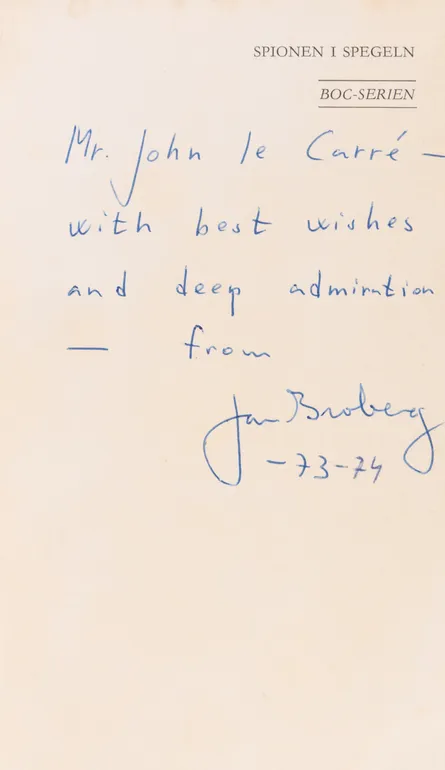 SPIONEN I SPEGELN
BOC-SERIEN
Mr. John le Carré —
with best wishes
and deep admiration
— from
Jan Broberg
-73-74